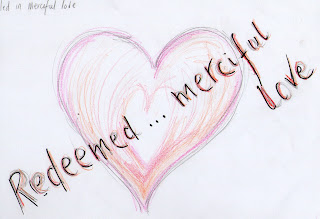 led in merciful love
Redeemed ... merciful
love